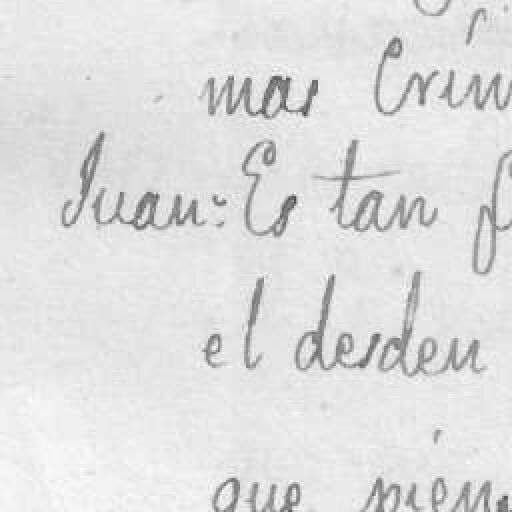 mas
Juan: Es tan
el desden
que